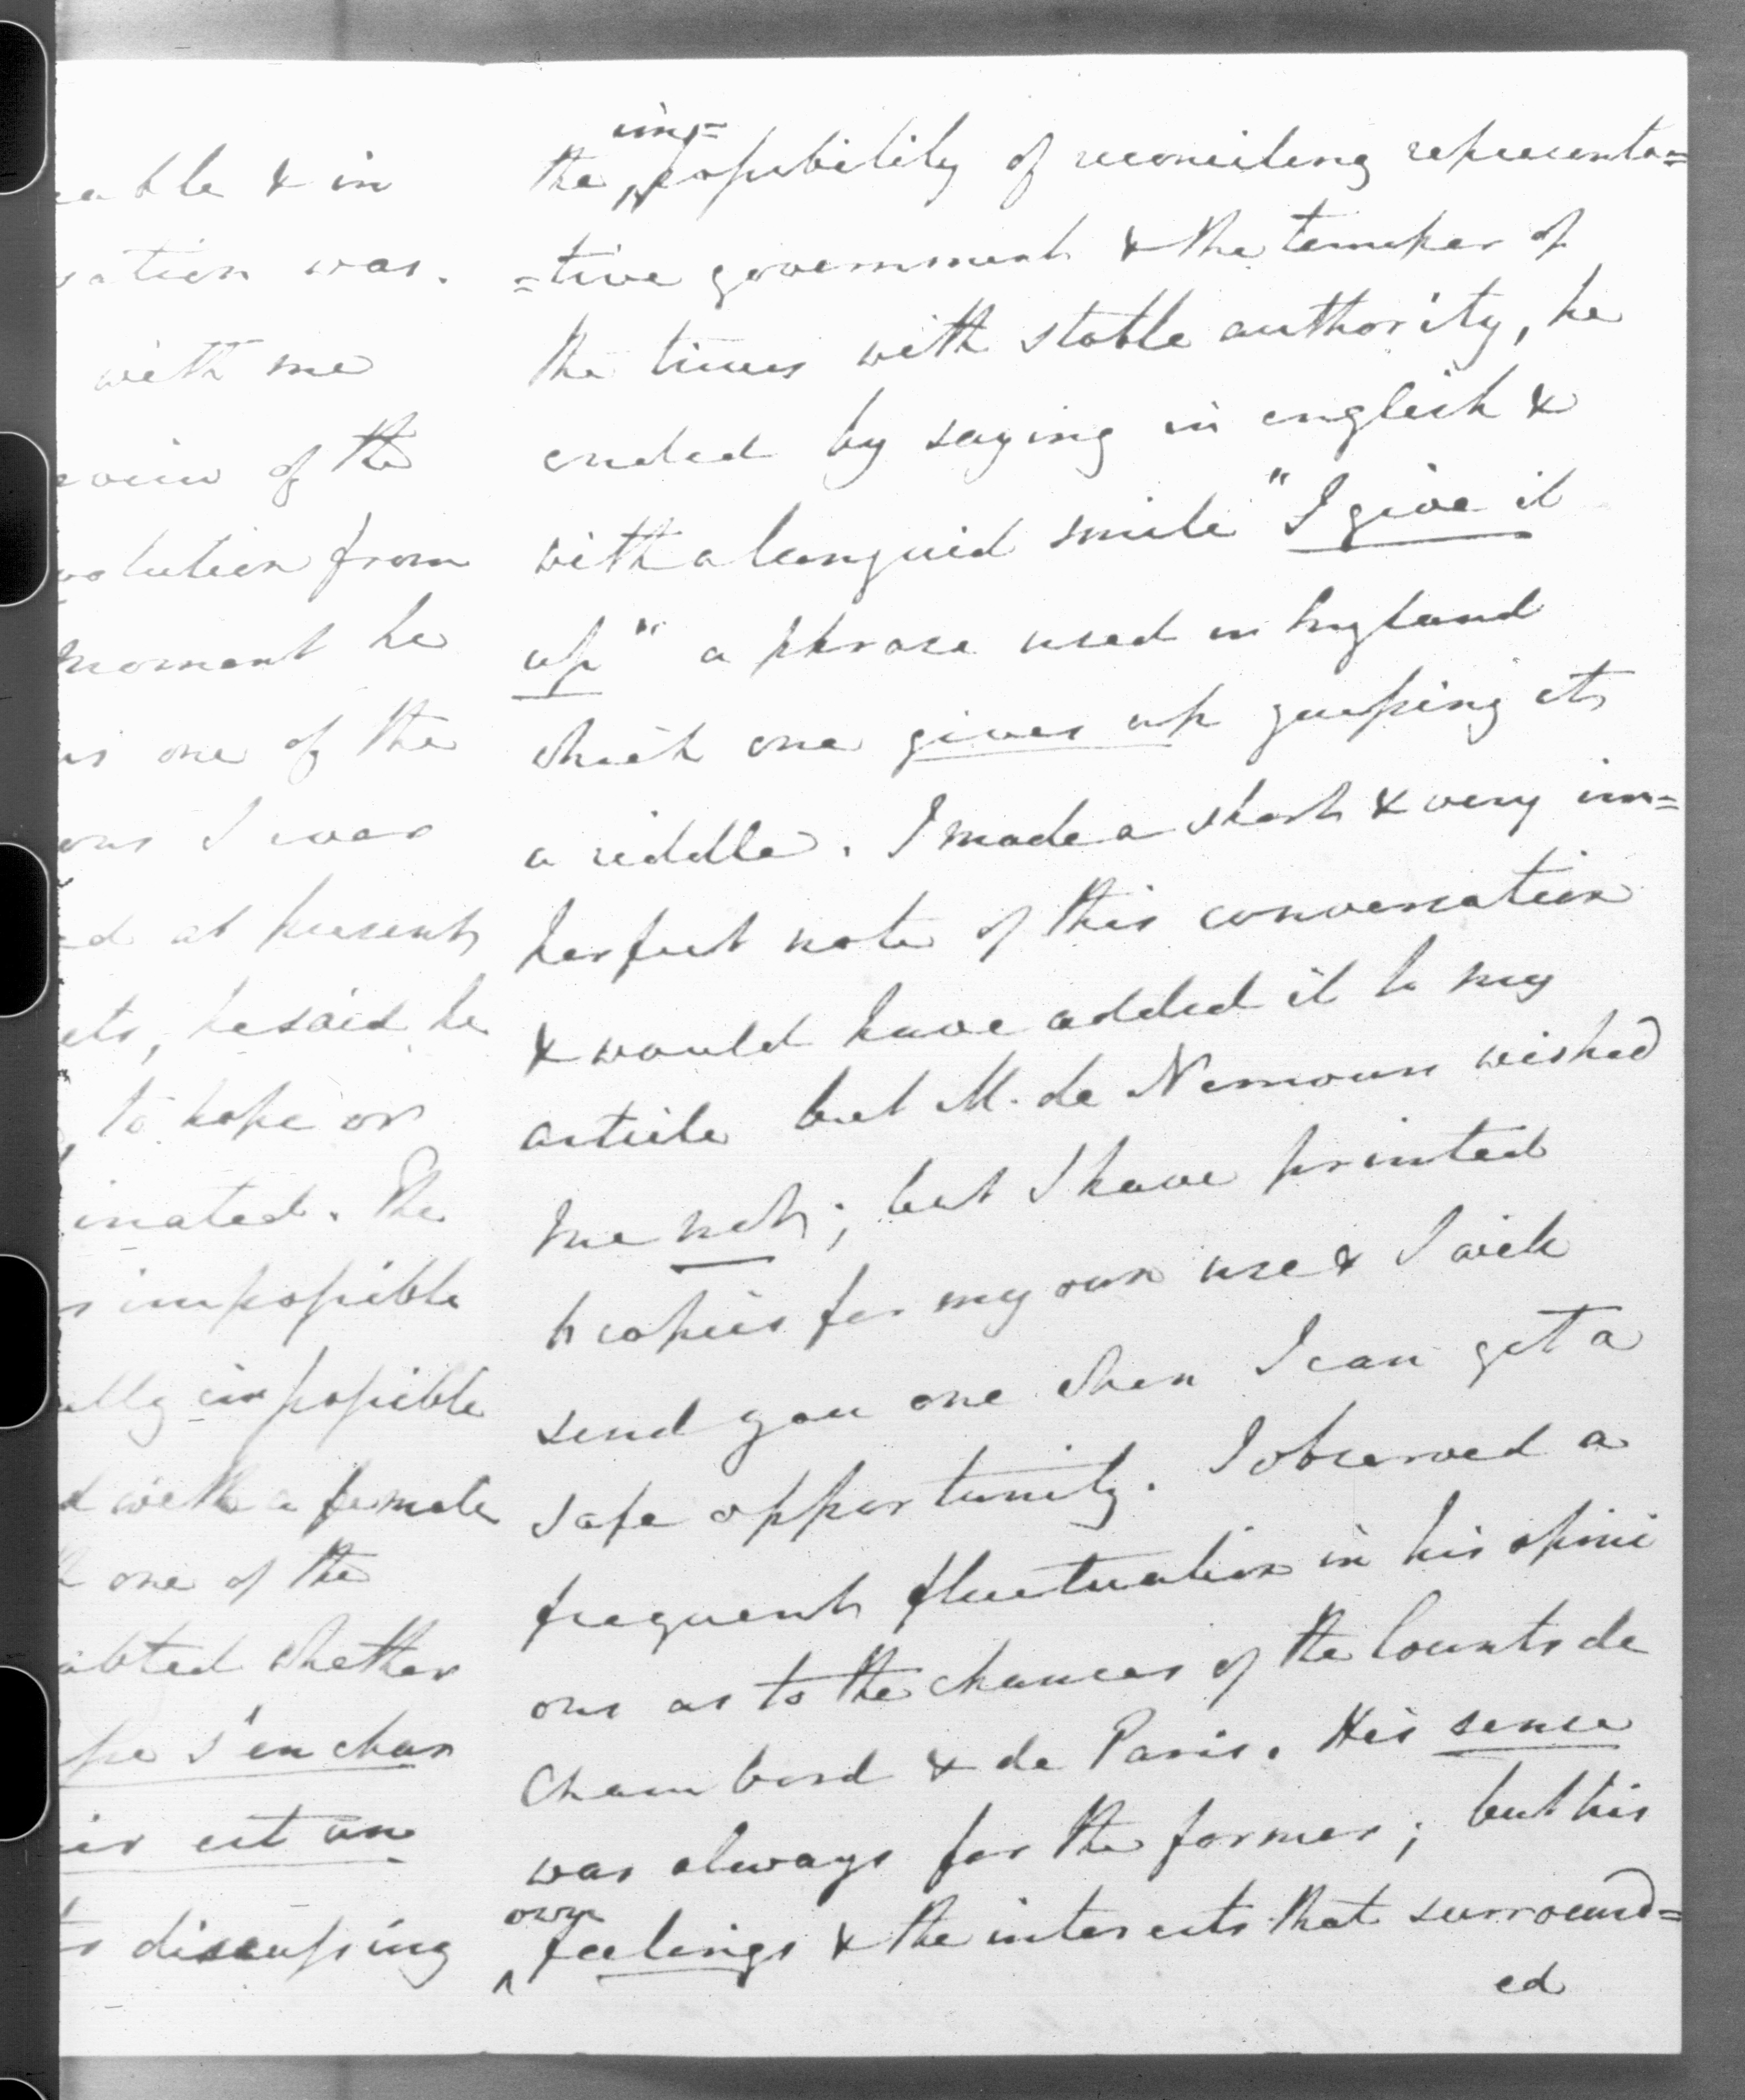 eable & in
sation was.
with me
view of the
volution from
moment he
as one of the
ons I was
ed at present
ets, he said he
, to hope or
inated. The
s impossible
ally impossible
d with a female
one of the
ubted whether
pe s'en char
ir est un
ts discussing
the possibility of reconciling representa=
im=
=tive government & the temper of
the times with stable authority, he
ended by saying in english &
with a languid smile "I give it
up" a phrase used in England
which one gives up guessing at
a riddle. I made a short & very im=
perfect note of this conversation
& would have added it to my
article but M. de Nemours wished
me not; but I have printed
copies for my own use & I will
send you one when I can get a
safe opportunity. I observed a
frequent fluctuation in his opini
ons as to the chances of the Counts de
Chambord & de Paris. His sense
was always for the former; but his
own
feelings & the interests that surround=
ed